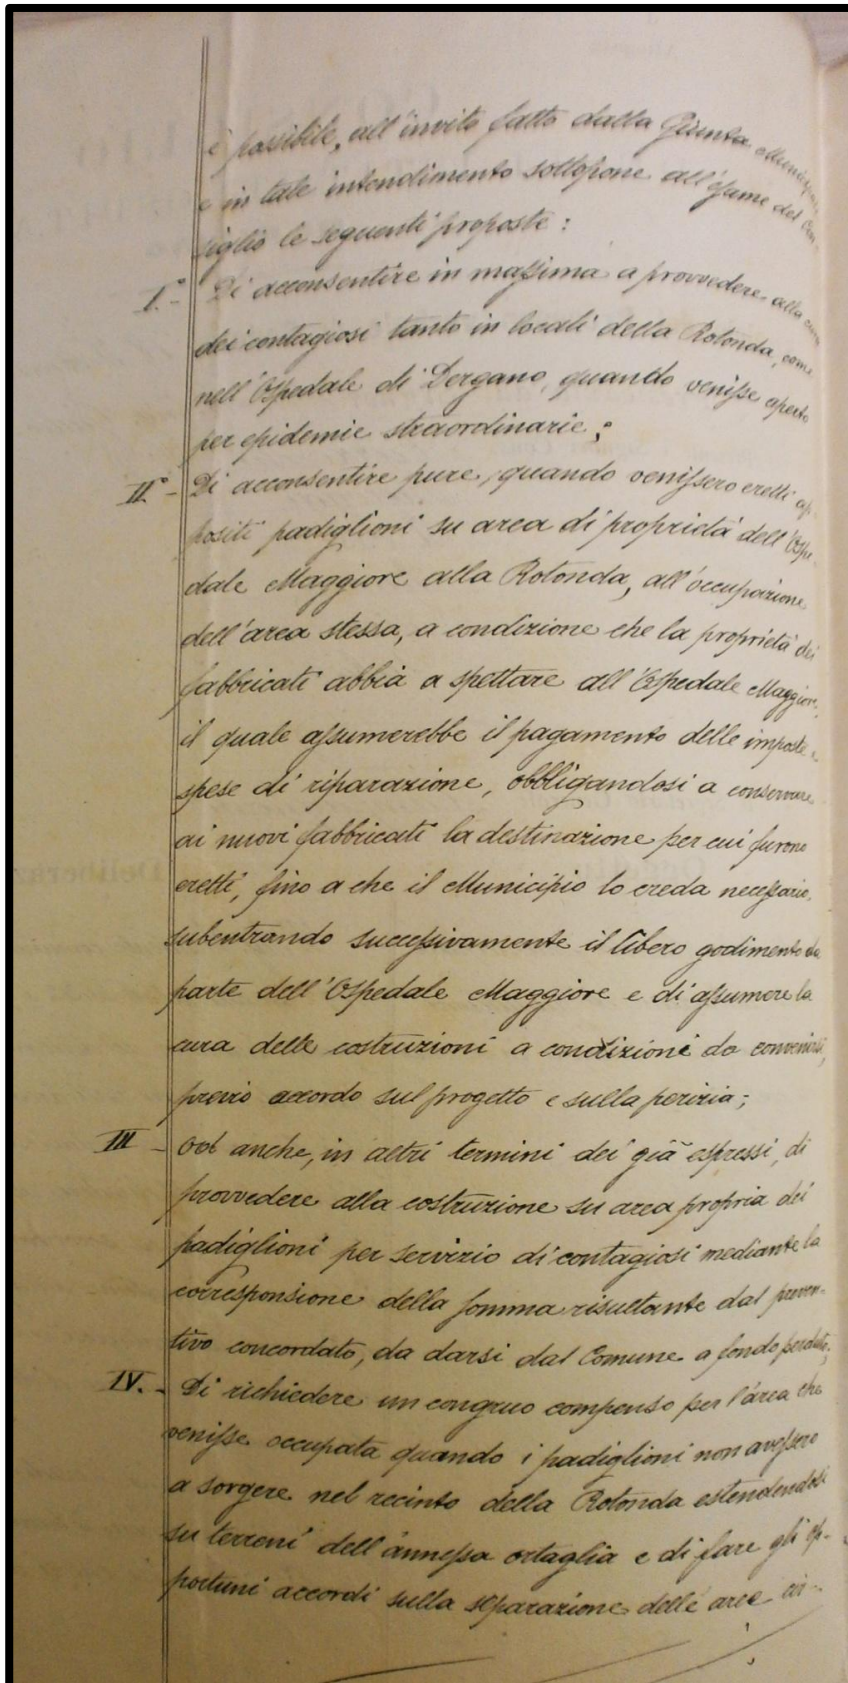 è possibile, all'invito fatto dalla Giunta Municipale
e in tale intendimento sottopone all'esame del Con-
siglio le seguenti proposte:
I.° - Di acconsentire in massima a provvedere alla cura
dei contagiosi tanto in locali della Rotonda, come
nell'Ospedale di Dergano, quando venisse aperto
per epidemie straordinarie;
II.° - Di acconsentire pure, quando venissero eretti ap-
positi padiglioni su area di proprietà dell'Ospe
dale Maggiore alla Rotonda, all'occupazione
dell'area stessa, a condizione che la proprietà dei
fabbricati abbia a spettare all'Ospedale Maggiore,
il quale assumerebbe il pagamento delle imposte e
spese di riparazione, obbligandosi a conservare
ai nuovi fabbricati la destinazione per cui furono
eretti, fino a che il Municipio lo creda necessario,
subentrando successivamente il libero godimento da
parte dell'Ospedale Maggiore e di assumere la
cura delle costruzioni a condizioni da convenirsi,
previo accordo sul progetto e sulla perizia;
III - Od anche, in altri termini dei già espressi, di
provvedere alla costruzione su area propria dei
padiglioni per servizio di contagiosi mediante la
corresponsione della somma risultante dal preven-
tivo concordato, da darsi dal Comune a fondo perduto;
IV. - Di richiedere un congruo compenso per l'area che
venisse occupata quando i padiglioni non avessero
a sorgere nel recinto della Rotonda estendendosi
su terreni dell'annessa ortaglia e di fare gli op-
portuni accordi sulla separazione delle aree